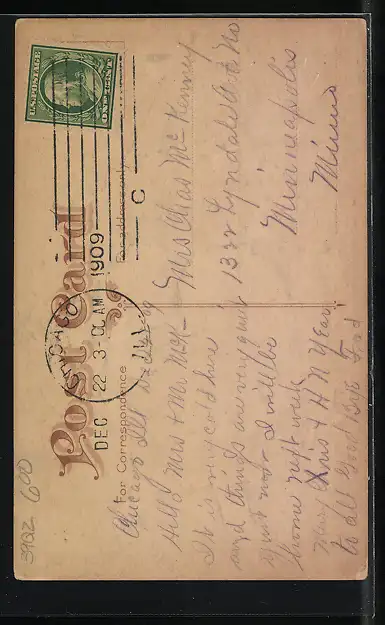 U.S. POSTAGE
ONE CENT
Post Card
CHICAGO
ILL
DEC 22 3-30 AM 1909
C
For Correspondence
For address only
Chicago Ill
Hello Mrs & Mr McK—
It is very cold here
and things are very quiet
just now— I will be
home next week
Merry Xmas & H N Year
to all Good Bye
Mrs Chas McKenney
1322 Lyndale Ave No
Minneapolis
Minn
392Z 600